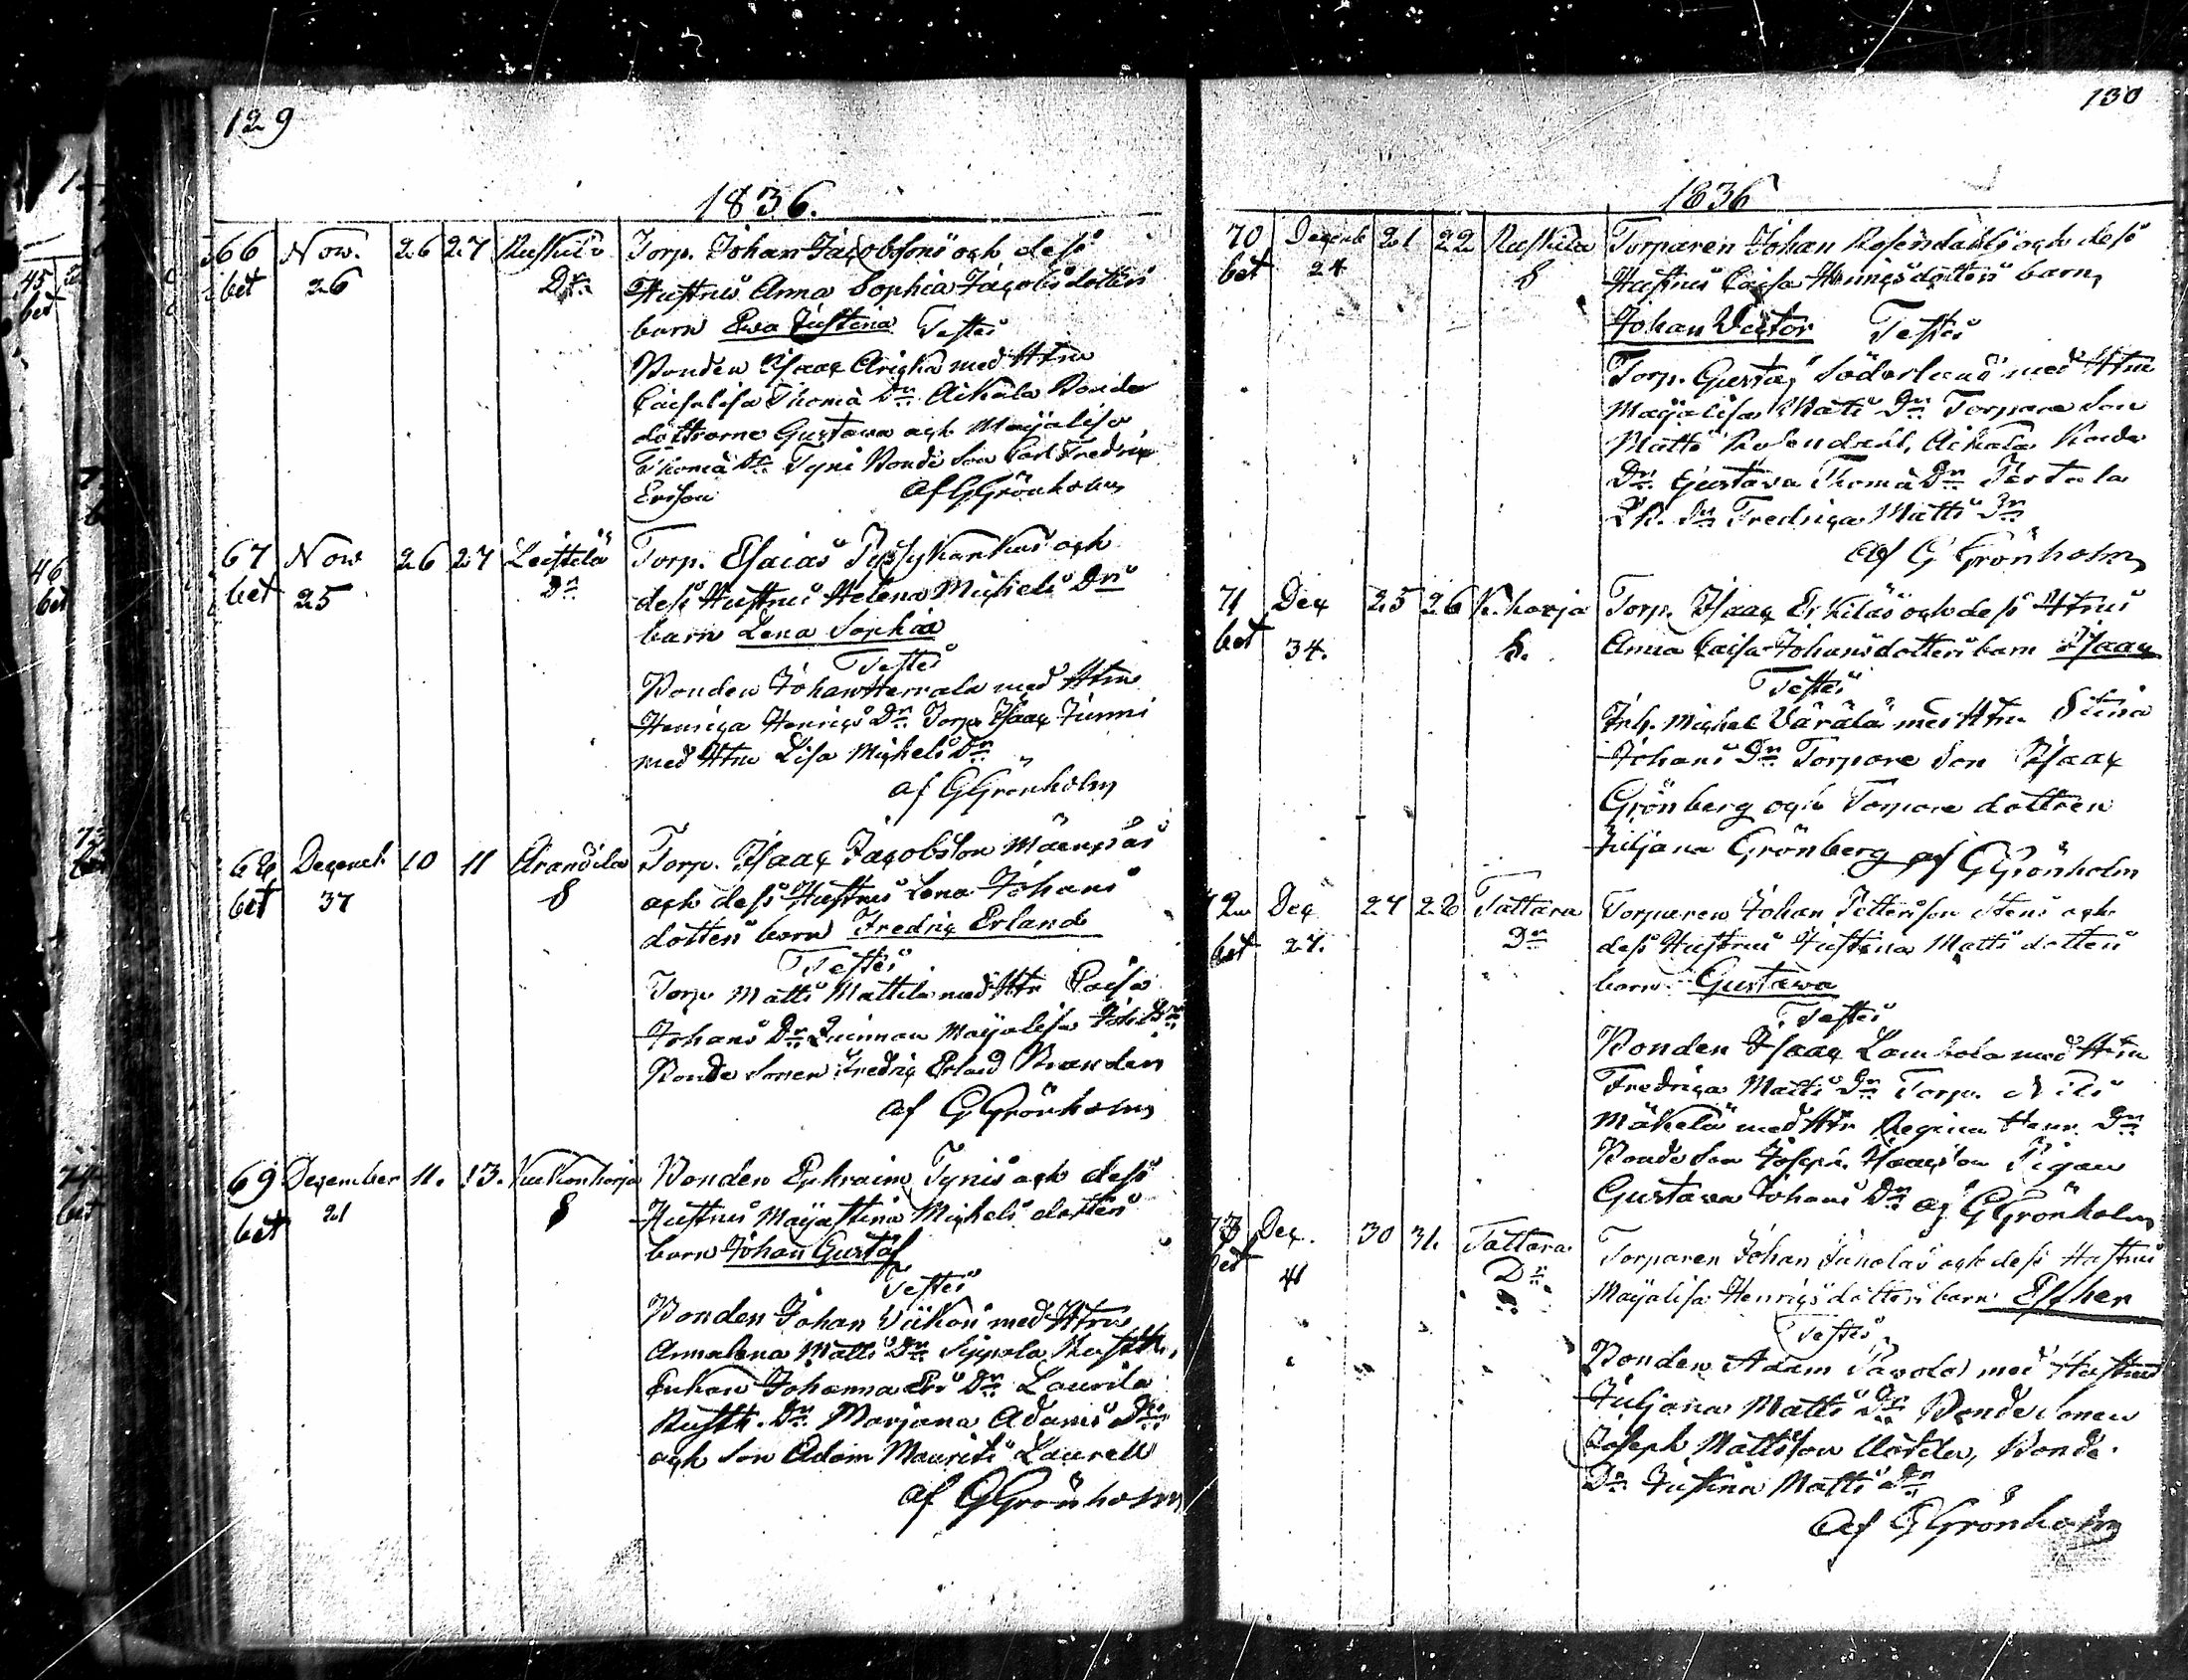 129
1836.
66 Now. 26 27 Torp. Johan Jacobsons och dess
bet 26 Dr. Hustrus Anna Sophia Jacobsdotters
barn Ewa Justina Testes
Bonden Isaac med Htru
Caisalisa Thomä Dr. Aikala Bonde
döttrarne Gustawa och Majalisa
Thomä Dr. Tyni Bonde Son Carl Fredric
Ericson af GGrönholm
67 Now 26 27 Leistilä Torp. Esaias och
bet 25 Dr dess Hustrus Helena Michels Drs
barn Lena Sophia
Testes
Bonden Johan Herrala med Htru
Henrica Henrics Dr Torp. Isaac Junni
med Htru Lisa Michels Dr
af GGrönholm
68 Decemb 10 11 Arandila Torp. Isaac Jacobson
bet 37 S och dess Hustrus Lena Johans
dotters barn Fredric Erland
Testes
Torp Matts Mattila med Htr Caisa
Johans Dr Qwinnan Majalisa
Bonde Sonen Fredric Erland
af GGrönholm
69 December 11. 13. Kuckonharja Bonden Ephraim Tynis och dess
bet 21 S Hustrus Majastina Michels dotters
barn Johan Gustaf
Testes
Bonden Johan med Htru
Annalena Matts Dr Sippola Rusth.
Enkan Johanna Ers Dr Laurila
Rusth. Dr Marjana Adams Dr
och Son Adam Maurits Laurell
af GGrönholm
130
1836
70 Decemb 21 22 Raskila Torparen Johan Rosendahls och dess
bet 24 S Hustrus Caisa Henricsdotters barn
Johan Victor Testes
Torp. Gustaf Söderlund med Htru
Majalisa Matts Dr Torpare Son
Matts Rosendahl, Aikala Bonde
Dr Gustava Thomä Dr Tertala
Dr Fredrica Matts Dr
af G Grönholm
71 Dec 25 26 K.harja Torp. Isaac Erkiläs och dess Htrus
bet 34. S. Anna Caisa Johansdotters barn Isaac
Testes
Inh. Michel Värälä med Htru Stina
Johans Dr Torpare Son Isaac
Grönberg och Torpare dottren
Juljana Grönberg af GGrönholm
72 Dec 27 28 Tattara Torparen Johan Pettersson Stens och
bet 27. Dr dess Hustrus Justina Matts dotters
barn Gustawa
Testes
Bonden Isaac Lambola med Htru
Fredrica Matts Dr Torp. Nils
Mäkelä med Htr Regina Henr. Dr
Bonde Son Joseph Isaacson Pigan
Gustawa Johans Dr af GGrönholm
73 Dec. 30 31. Tattara Torparen Johan Junolas och dess Hustrus
bet 41 Dr. Majalisa Henricsdotters barn Esther
Testes
Bonden Adam Pavola med Hustru
Juljana Matts Dr Bonde Sonen
Joseph Mattsson Uotila, Bonde
Dr Justina Matts Dr
af GGrönholm